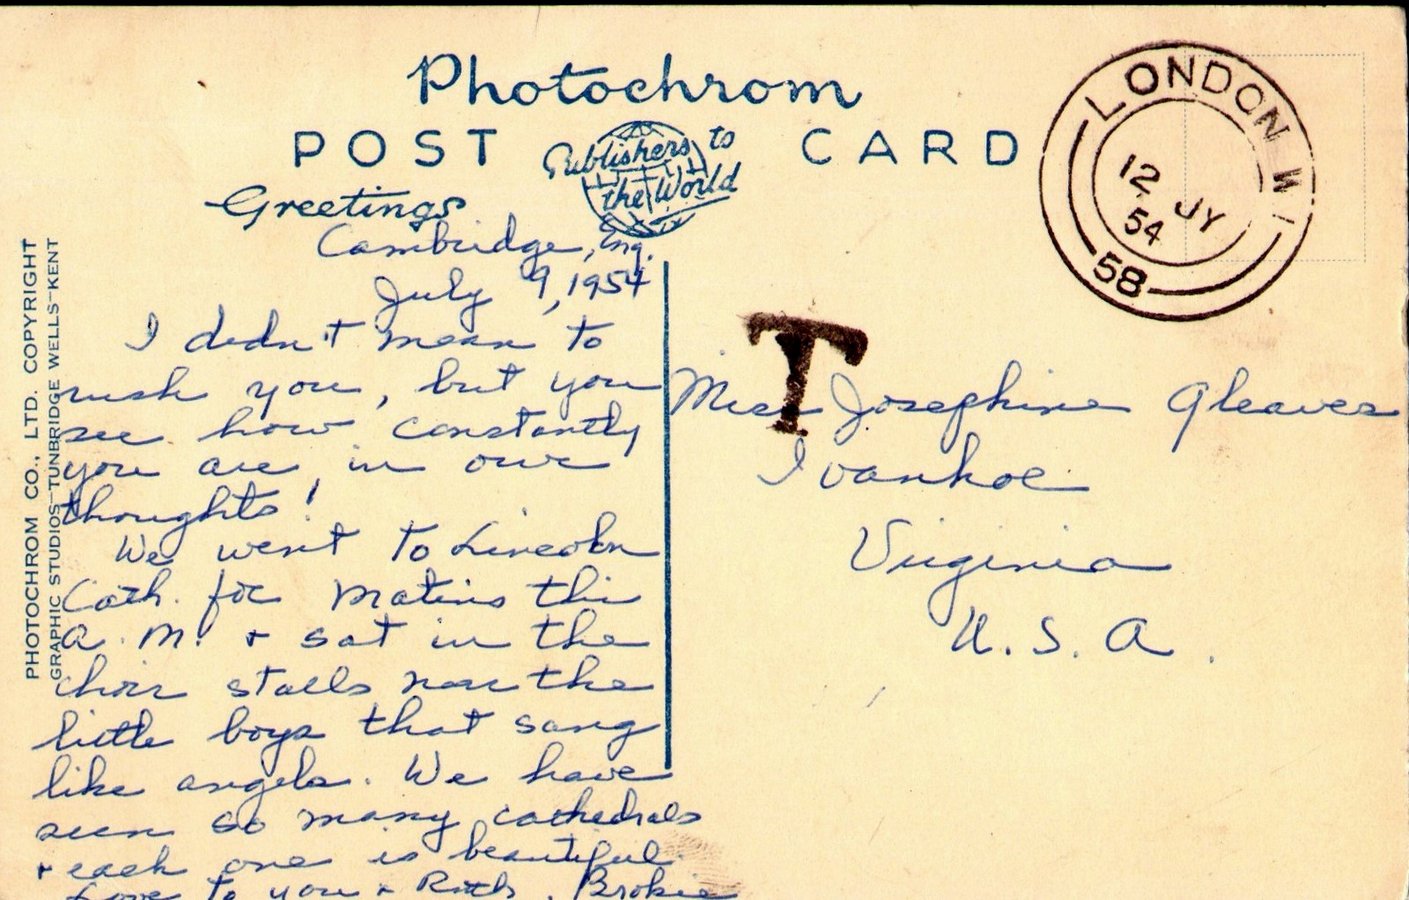 Photochrom
POST CARD
Publishers to
the World
Greetings
LONDON W1
12 JY
54
58
T
PHOTOCHROM CO., LTD. COPYRIGHT
GRAPHIC STUDIOS–TUNBRIDGE WELLS–KENT
Cambridge, Eng.
July 9, 1954
I didn't mean to
rush you, but you
see how constantly
you are in our
thoughts!
We went to Lincoln
Cath. for Matins this
A.M. + sat in the
choir stalls near the
little boys that sang
like angels. We have
seen so many cathedrals
+ each one is beautiful.
Love to you + Ruth, Brokie
Miss Josephine Gleaves
Ivanhoe
Virginia
U.S.A.